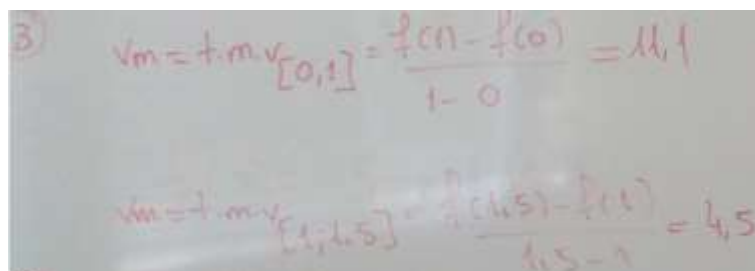 3) Vm = t.m.v[0,1] = f(1) - f(0) / 1 - 0 = 11,1
Vm = t.m.v[1;1.5] = f(1,5) - f(1) / 1,5 - 1 = 4,5